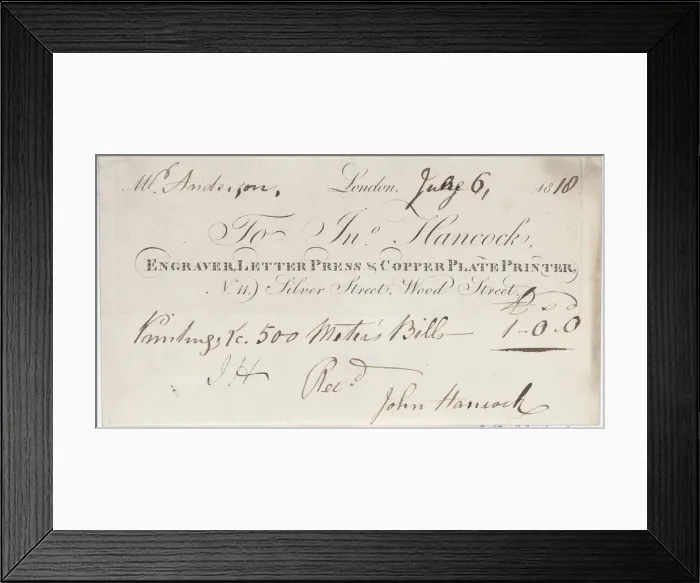 Mr. Anderson, London, July 6, 1818
To Jno. Hancock,
ENGRAVER, LETTER PRESS & COPPER PLATE PRINTER,
No. 11, Silver Street, Wood Street,
£ s d
Printing, &c. 500 Bills 1-0.0
JH Recd
John Hancock